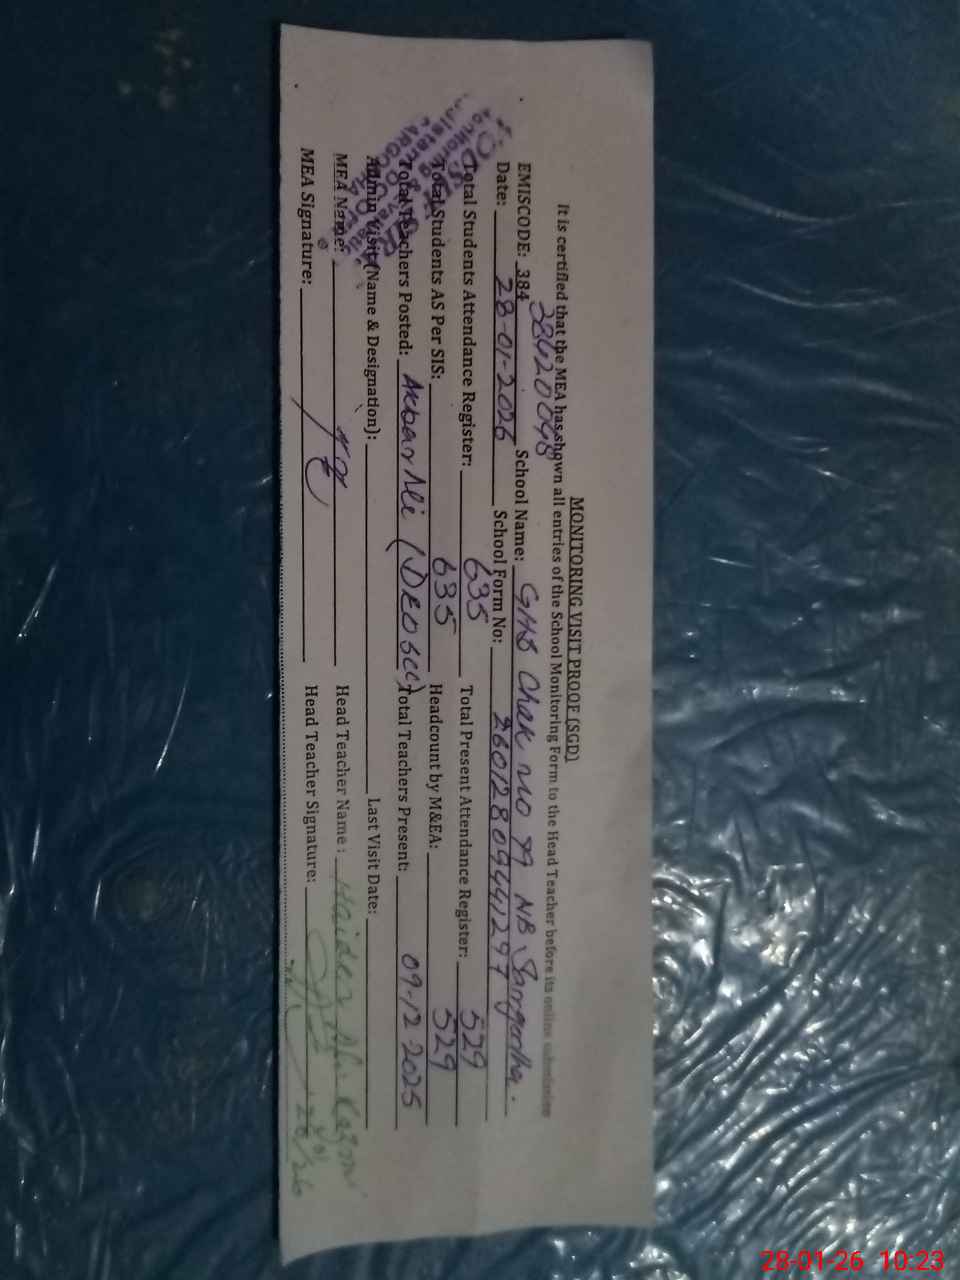 MONITORING VISIT PROOF (SGD)
It is certified that the MEA has shown all entries of the School Monitoring Form to the Head Teacher before its online submission
EMISCODE: 384 38420048 School Name: GHS Chak No 79 NB Sargodha.
Date: 28-01-2026 School Form No: 26012809441297
Total Students Attendance Register: 635 Total Present Attendance Register: 529
Total Students AS Per SIS: 635 Headcount by M&EA: 529
Total Teachers Posted: Akbar Ali (DEOSEC) Total Teachers Present: 09-12 2025
Admin Visit (Name & Designation): Last Visit Date:
MEA Name: Head Teacher Name: Haider
MEA Signature: Head Teacher Signature:
28-01-26 10:23